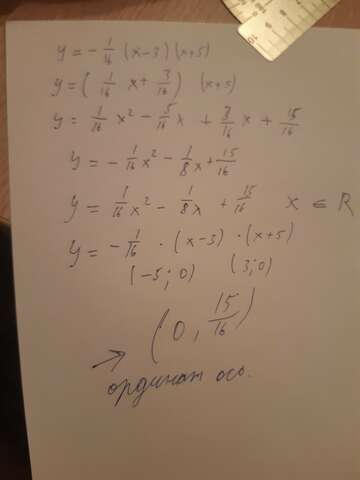 y = - 1/16 (x-3) (x+5)
y = ( 1/16 x + 3/16 ) (x+5)
y = 1/16 x² - 5/16 x + 3/16 x + 15/16
y = - 1/16 x² - 1/8 x + 15/16
y = 1/16 x² - 1/8 x + 15/16 x ∈ R
y = - 1/16 · (x-3) · (x+5)
(-5; 0) (3; 0)
(0, 15/16)
→ ординат ось.